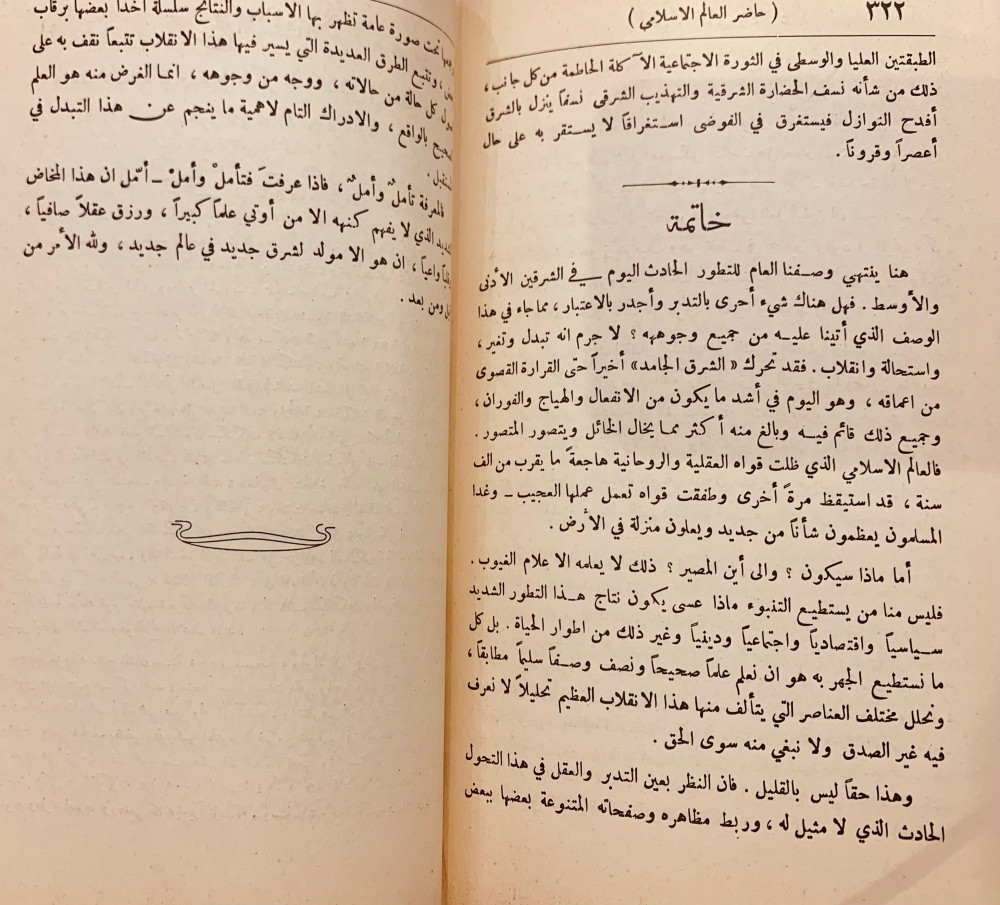 ( حاضر العالم الاسلامي ) ٣٢٢
الطبقتين العليا والوسطى في الثورة الاجتماعية الآكلة الحاطمة من كل جانب ،
ذلك من شأنه نسف الحضارة الشرقية والتهذيب الشرقي نسفاً ينزل بالشرق
أفدح النوازل فيستغرق في الفوضى استغراقاً لا يستقر به على حال
أعصراً وقروناً .
خاتمة
هنا ينتهي وصفنا العام للتطور الحادث اليوم في الشرقين الأدنى
والأوسط . فهل هناك شيء أحرى بالتدبر وأجدر بالاعتبار ، مما جاء في هذا
الوصف الذي أتينا عليه من جميع وجوهه ؟ لا جرم انه تبدل وتغير ،
واستحالة وانقلاب . فقد تحرك « الشرق الجامد » أخيراً حتى القرارة القصوى
من اعماقه ، وهو اليوم في أشد ما يكون من الانفعال والهياج والفوران ،
وجميع ذلك قائم فيه وبالغ منه أكثر مما يخال الخائل ويتصور المتصور .
فالعالم الاسلامي الذي ظلت قواه العقلية والروحانية هاجعة ما يقرب من الف
سنة ، قد استيقظ مرةً أخرى وطفقت قواه تعمل عملها العجيب ــ وغدا
المسلمون يعظمون شأناً من جديد ويعلون منزلة في الأرض .
أما ماذا سيكون ؟ والى أين المصير ؟ ذلك لا يعلمه الا علام الغيوب .
فليس منا من يستطيع التنبوء ماذا عسى يكون نتاج هذا التطور الشديد
سياسياً واقتصادياً واجتماعياً ودينياً وغير ذلك من اطوار الحياة . بل كل
ما نستطيع الجهر به هو ان نعلم علماً صحيحاً ونصف وصفاً سليماً مطابقاً ،
ونحلل مختلف العناصر التي يتألف منها هذا الانقلاب العظيم تحليلاً لا نعرف
فيه غير الصدق ولا نبغي منه سوى الحق .
وهذا حقاً ليس بالقليل . فان النظر بعين التدبر والعقل في هذا التحول
الحادث الذي لا مثيل له ، وربط مظاهره وصفحاته المتنوعة بعضها ببعض
تحت صورة عامة تظهر بها الاسباب والنتائج سلسلة آخذاً بعضها برقاب
، وتتبع الطرق العديدة التي يسير فيها هذا الانقلاب تتبعاً نقف به على
كل حالة من حالاته ، ووجه من وجوهه ، انما الغرض منه هو العلم
بالواقع ، والادراك التام لاهمية ما ينجم عن هذا التبدل في
فالمعرفة تأملٌ وأملٌ ، فاذا عرفتَ فتأملْ وأملْ ــ أمّل ان هذا المخاض
الذي لا يفهم كنهه الا من أوتي علماً كبيراً ، ورزق عقلاً صافياً ،
واعياً ، ان هو الا مولد لشرق جديد في عالم جديد ، ولله الأمر من
ومن بعد .